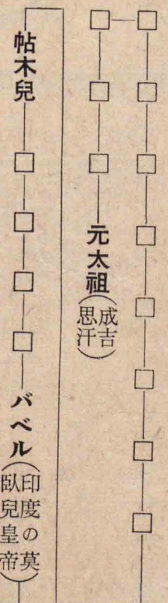 元太祖(成吉思汗)
帖木兒
バベル(印度の莫臥兒皇帝)